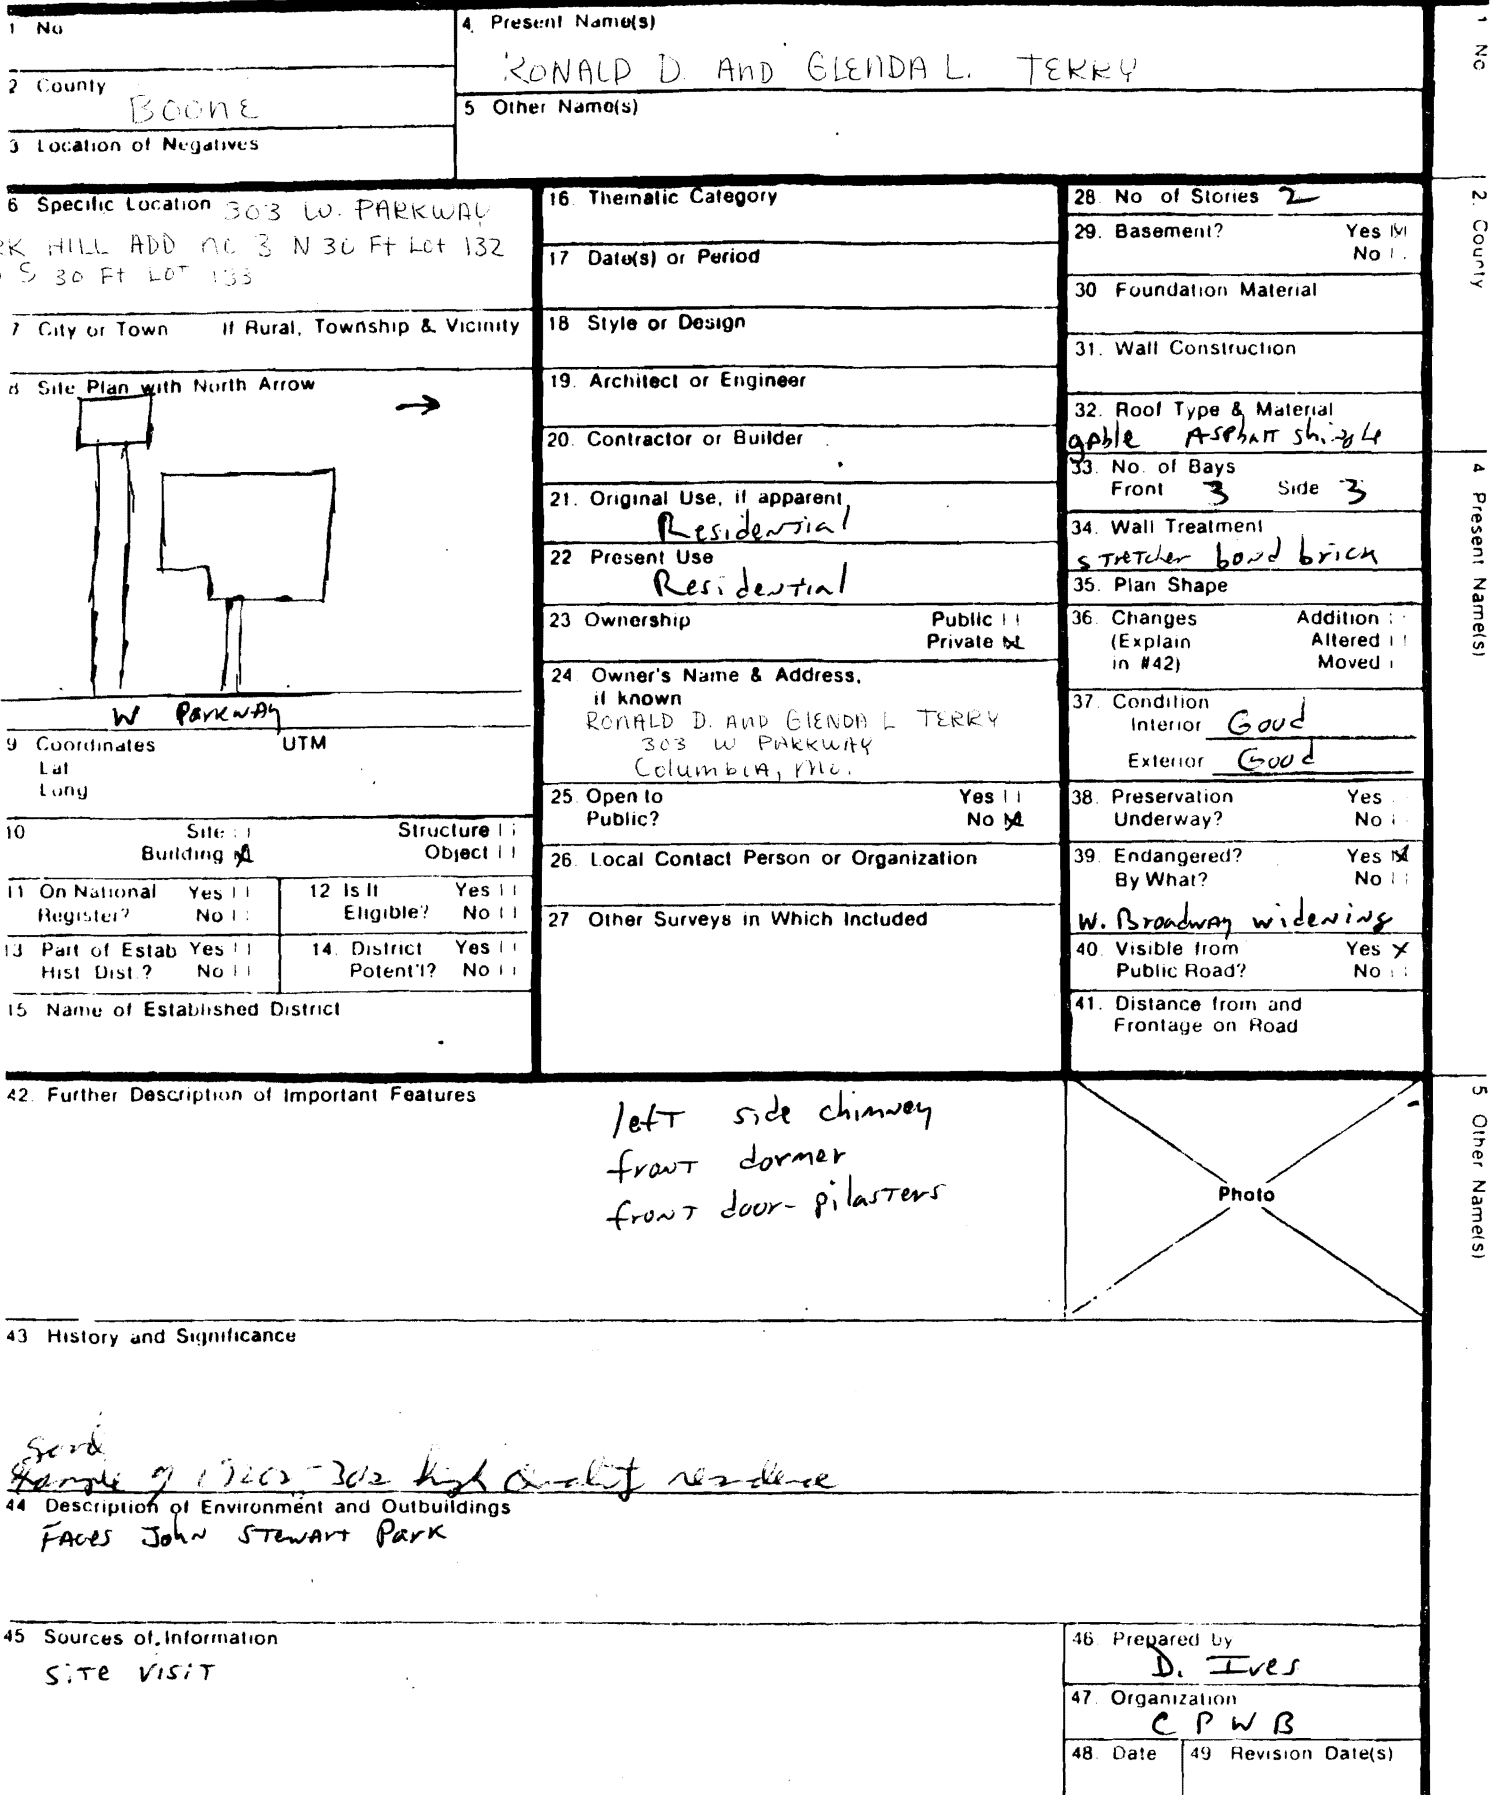 1 No
4. Present Name(s)
RONALD D. AND GLENDA L. TERRY
2 County
BOONE
5 Other Name(s)
3 Location of Negatives
6 Specific Location 303 W. PARKWAY
RK HILL ADD NO 3 N 30 Ft Lot 132
S 30 Ft LOT 133
7 City or Town If Rural, Township & Vicinity
8 Site Plan with North Arrow
W Parkway
9 Coordinates UTM
Lat
Long
10 Site
Structure
Building
Object
11 On National Register? Yes No
12 Is It Eligible? Yes No
13 Part of Estab Hist Dist.? Yes No
14. District Potent'l? Yes No
15 Name of Established District
16. Thematic Category
17 Date(s) or Period
18 Style or Design
19. Architect or Engineer
20. Contractor or Builder
21. Original Use, if apparent
Residential
22 Present Use
Residential
23 Ownership Public
Private
24 Owner's Name & Address,
if known
RONALD D. AND GLENDA L TERRY
303 W PARKWAY
Columbia, Mo.
25. Open to Yes
Public? No
26. Local Contact Person or Organization
27 Other Surveys in Which Included
28. No of Stories 2
29. Basement? Yes
No
30 Foundation Material
31. Wall Construction
32. Roof Type & Material
gable Asphalt shingle
33. No. of Bays
Front 3 Side 3
34. Wall Treatment
stretcher bond brick
35. Plan Shape
36. Changes Addition
(Explain Altered
in #42) Moved
37. Condition
Interior Good
Exterior Good
38. Preservation Yes
Underway? No
39. Endangered? Yes
By What? No
W. Broadway widening
40. Visible from Yes X
Public Road? No
41. Distance from and
Frontage on Road
42. Further Description of Important Features
left side chimney
front dormer
front door- pilasters
Photo
43 History and Significance
Good
example of 1920s-30s high quality residence
44 Description of Environment and Outbuildings
FACES John Stewart Park
45 Sources of Information
Site visit
46. Prepared by
D. Ives
47. Organization
CPWB
48. Date
49 Revision Date(s)
1 No
2. County
4 Present Name(s)
5 Other Name(s)